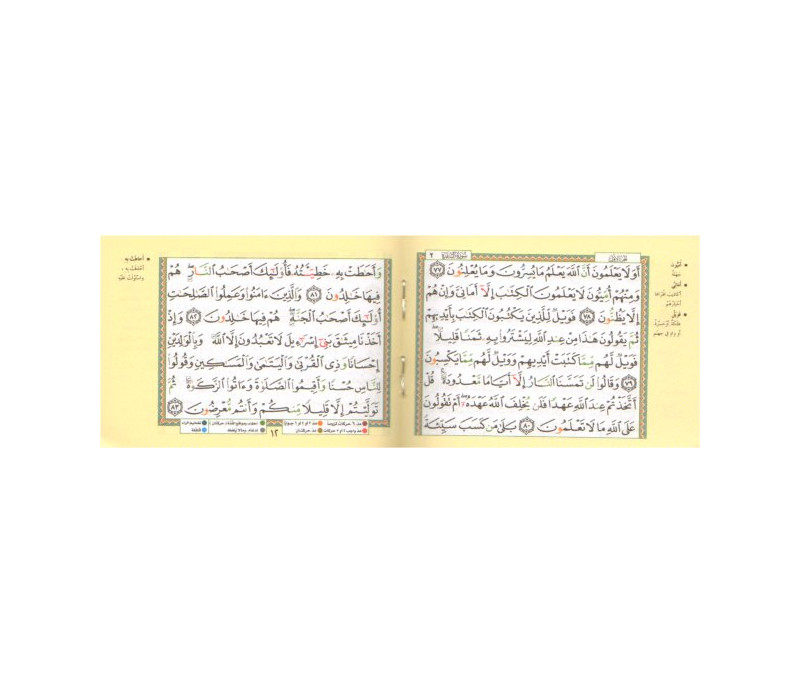 سورة البقرة ٢
أَوَلَا يَعْلَمُونَ أَنَّ ٱللَّهَ يَعْلَمُ مَا يُسِرُّونَ وَمَا يُعْلِنُونَ ٧٧
وَمِنْهُمْ أُمِّيُّونَ لَا يَعْلَمُونَ ٱلْكِتَٰبَ إِلَّآ أَمَانِيَّ وَإِنْ هُمْ
إِلَّا يَظُنُّونَ ٧٨ فَوَيْلٌ لِّلَّذِينَ يَكْتُبُونَ ٱلْكِتَٰبَ بِأَيْدِيهِمْ
ثُمَّ يَقُولُونَ هَٰذَا مِنْ عِندِ ٱللَّهِ لِيَشْتَرُوا۟ بِهِۦ ثَمَنًا قَلِيلًا ۖ
فَوَيْلٌ لَّهُم مِّمَّا كَتَبَتْ أَيْدِيهِمْ وَوَيْلٌ لَّهُم مِّمَّا يَكْسِبُونَ
٧٩ وَقَالُوا۟ لَن تَمَسَّنَا ٱلنَّارُ إِلَّآ أَيَّامًا مَّعْدُودَةً ۚ قُلْ
أَتَّخَذْتُمْ عِندَ ٱللَّهِ عَهْدًا فَلَن يُخْلِفَ ٱللَّهُ عَهْدَهُۥٓ ۖ أَمْ تَقُولُونَ
عَلَى ٱللَّهِ مَا لَا تَعْلَمُونَ ٨٠ بَلَىٰ مَن كَسَبَ سَيِّئَةً
أُمِّيُّونَ
جهلة
أَمَانِيَّ
فَوَيْلٌ
وَأَحَٰطَتْ بِهِۦ خَطِيٓـَٔتُهُۥ فَأُو۟لَٰٓئِكَ أَصْحَٰبُ ٱلنَّارِ ۖ هُمْ
فِيهَا خَٰلِدُونَ ٨١ وَٱلَّذِينَ ءَامَنُوا۟ وَعَمِلُوا۟ ٱلصَّٰلِحَٰتِ
أُو۟لَٰٓئِكَ أَصْحَٰبُ ٱلْجَنَّةِ ۖ هُمْ فِيهَا خَٰلِدُونَ ٨٢ وَإِذْ
أَخَذْنَا مِيثَٰقَ بَنِىٓ إِسْرَٰٓءِيلَ لَا تَعْبُدُونَ إِلَّا ٱللَّهَ وَبِٱلْوَٰلِدَيْنِ
إِحْسَانًا وَذِى ٱلْقُرْبَىٰ وَٱلْيَتَٰمَىٰ وَٱلْمَسَٰكِينِ وَقُولُوا۟
لِلنَّاسِ حُسْنًا وَأَقِيمُوا۟ ٱلصَّلَوٰةَ وَءَاتُوا۟ ٱلزَّكَوٰةَ ثُمَّ
تَوَلَّيْتُمْ إِلَّا قَلِيلًا مِّنكُمْ وَأَنتُم مُّعْرِضُونَ ٨٣
أَحَٰطَتْ بِهِ
١٢